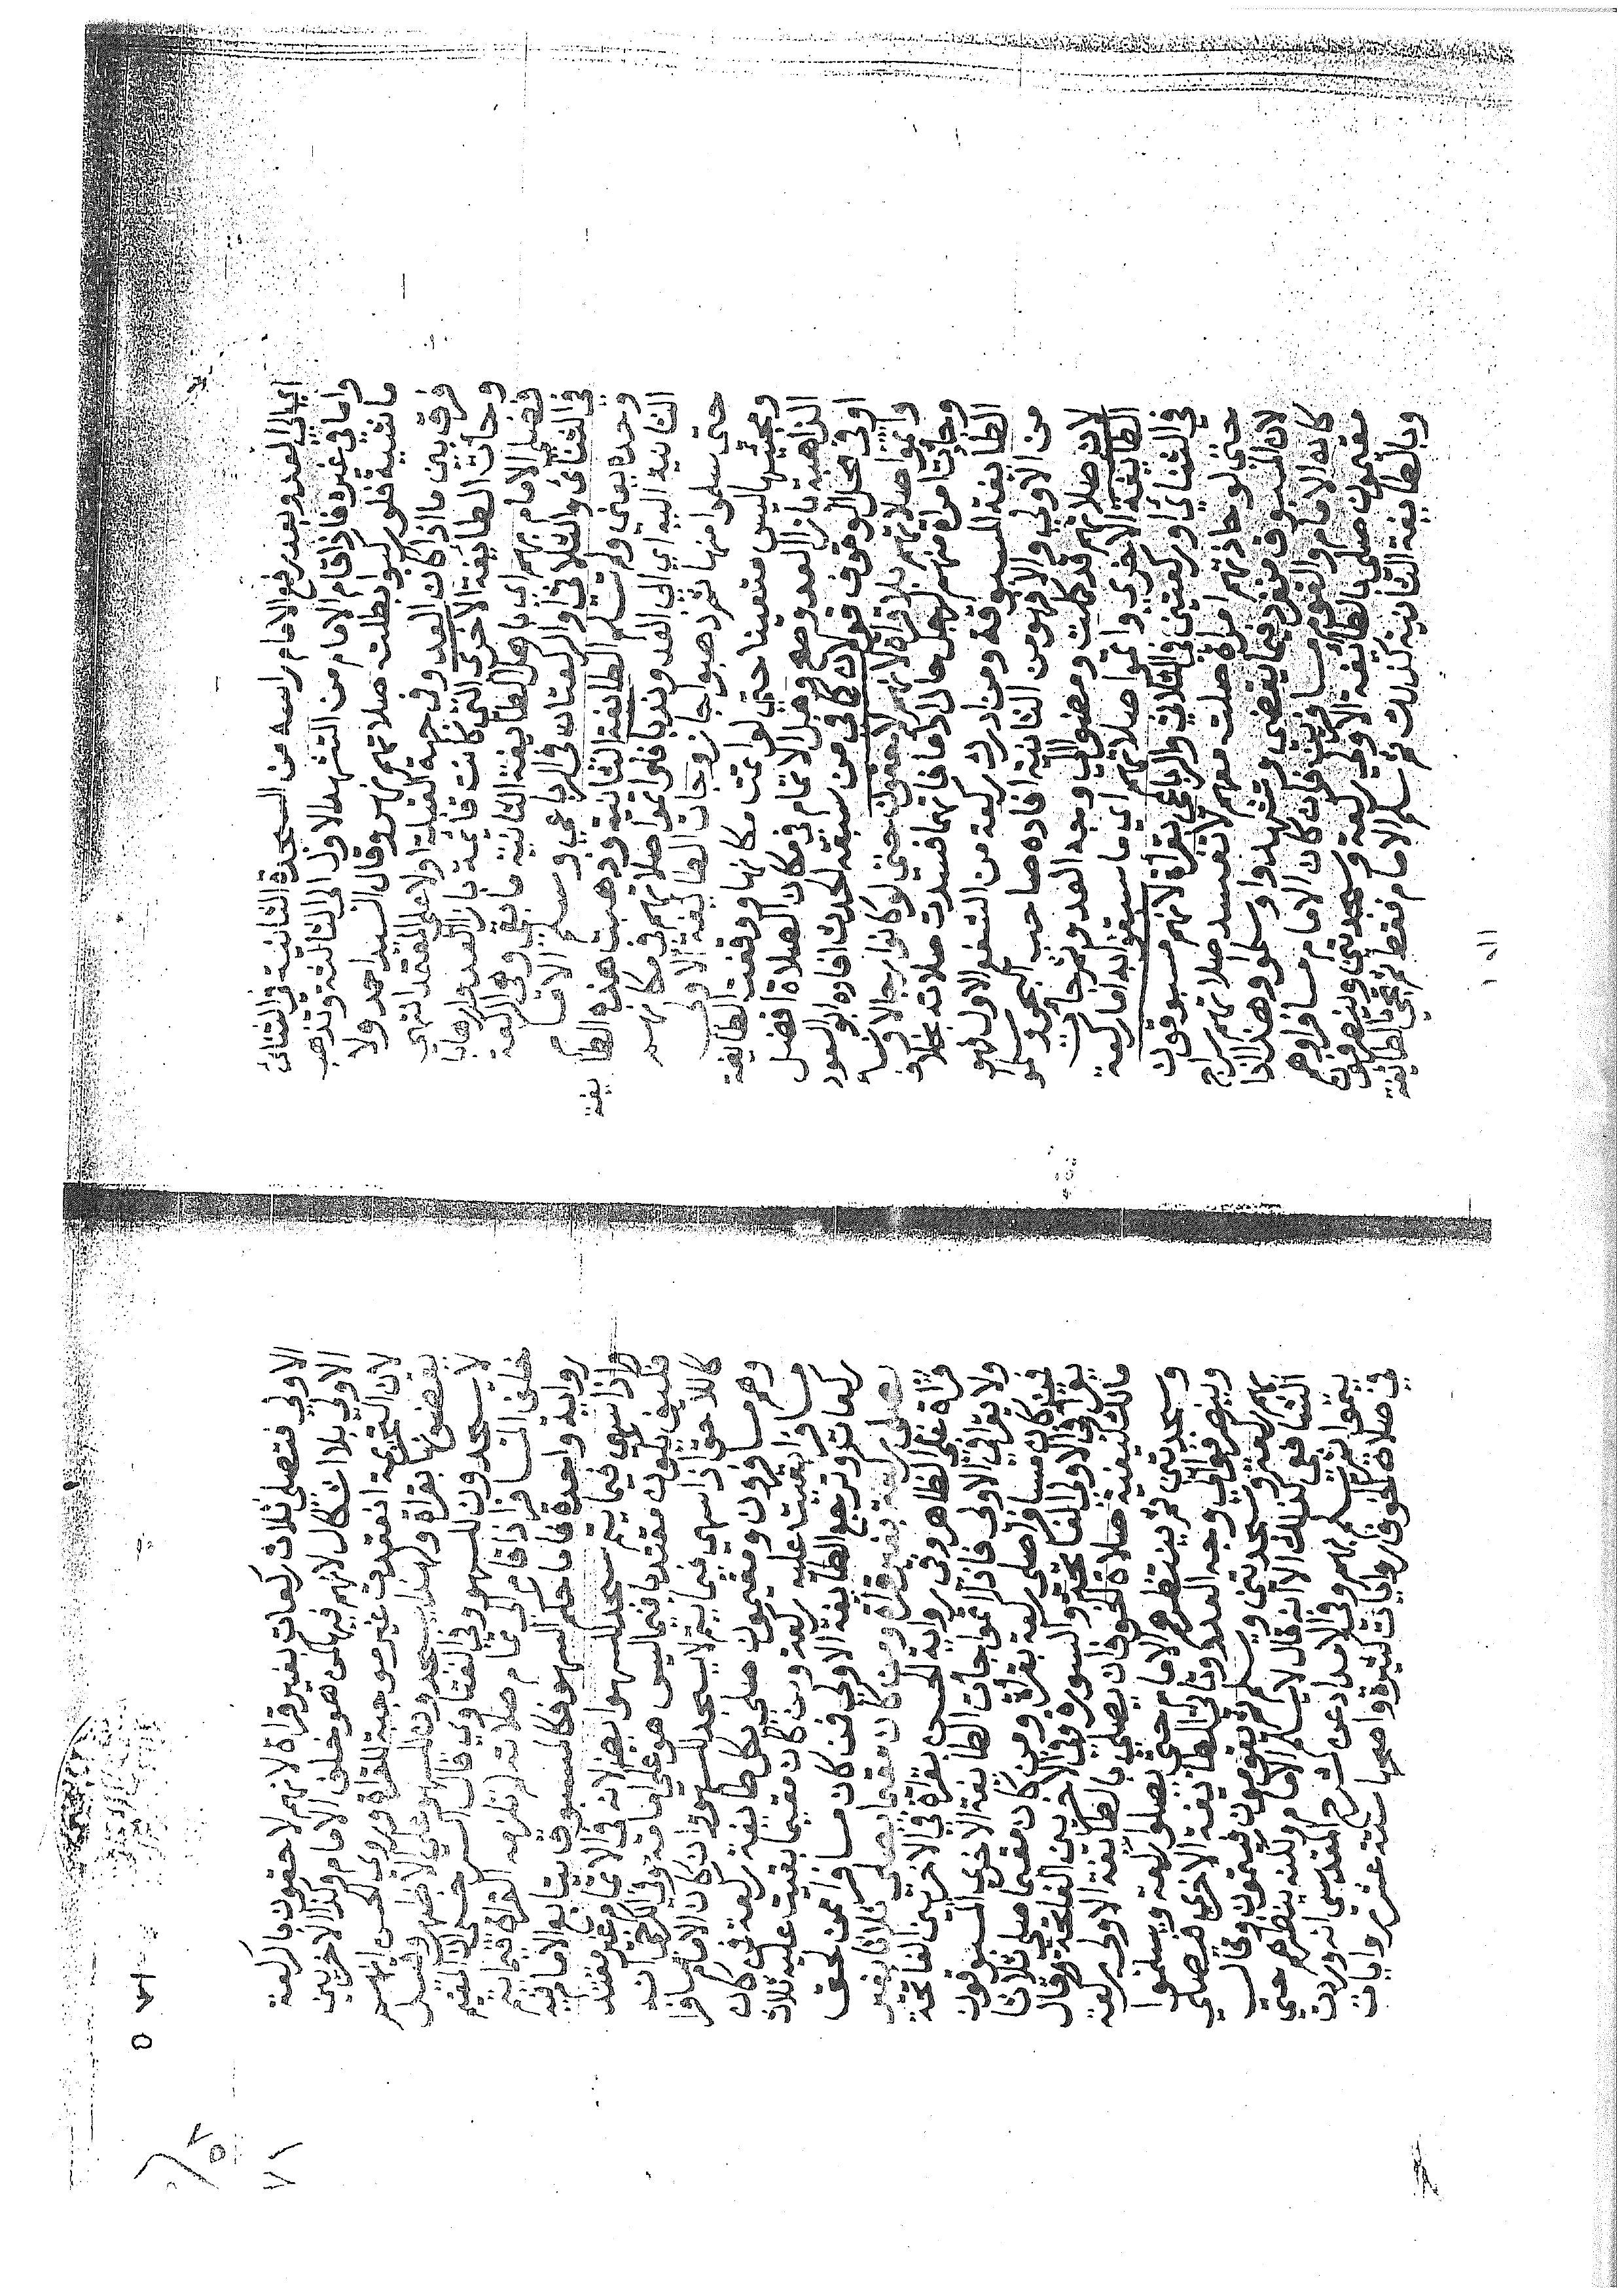 اي الي العدو بعد رفع الامام راسه من السجدة الثانية في الثنائي
واما في غيره فاذا قام الامام من التشهد الاول الي الثالثة وتذهب
ماشية فلو ركبوا بطلت صلاتهم نهر وقال السيد احمد ولا
فرق بين ما اذا كان العدو في جهة القبلة او لا علي المعتمد انتهي
وجات الطائفة الاخري التي كانت قائمة بازاء العدو
فصلي الامام بهم اي باهل الطايفة الثانية ما بقي وهو الركعة
في الثنائي والثلاثي والركعتان في الرباعي وسلم الامام
وحده يعني ولم تسلم الطائفة الثانية وذهبت هذه الطايفة
الثانية اليه اي الي العدو ندبا فلو اتموا صلاتهم في مكانهم
حتي سلموا منها ثم ذهبوا جاز وجات الطايفة الاولي
ومجيئها ليس متعينا حتي لو اتمت مكانها ووقفت الطايفة
الذاهبة بازاء العدو صح وهل الاتمام في مكان الصلاة افضل
او في محل الوقوف قولان كما في من سبقه الحدث افاده ابو السعود
واتموا صلاتهم بلا قراة لانهم لاحقون حتي لو كانوا رجالا ونسا
وحاذت امراة منهم رجل حال اداء ما فاتهما فسدت صلاته بخلاف
الطايفة المسبوقة ومن ادرك ركعة من الشفع الاول فهو
من الاولي والا فهو من الثانية افاده صاحب البحر وسلموا
لان صلاتهم قد كملت ومضوا الي وجه العدو ثم جات
الطايفة الاخري واتموا صلاتهم اي ما سبقوا به اما ركعة
في الثنائي او ركعتين في الثلاثي والرباعي بقراة لانهم مسبوقون
حتي لو حاذتهم امراة صلت معهم لا تفسد صلاتهم سراج
لان المسبوق منفرد فيما يقضي وتشهدوا وسلموا وهذا اذا
كان الامام والقوم مسافرين فان كان الامام مسافرا وهم
مقيمون صلي بالطائفة الاولي ركعة وسجدتين وينصرفون
وبالطايفة الثانية كذلك ثم سلم الامام فقط ثم تجي الطايفة
الاولي فتصلي ثلاث ركعات بغير قراة لانهم لاحقون بالركعة
الاولي بلا اشكال لانهم فيها كمن هو خلف الامام وكذا الاخريين
لان التحريمة انعقدت غير موجبة للقراة وروي الحسن انهم
يقضون بقراة وهل يسجدون للسهو علي الاظهر وقيل
لا يسجدون للسهو وفي الفتاوي قال السرخسي ان المقيم
خلف المسافر اذا قام الي اتمام صلاته لم تلزمه القراة فيما يتم
رواية واحدة فاما حكم السهو فكالمسبوق يتابع الامام فيه
واذا سهي فيما يتم سجد للسهو ايضا لانه في الاتمام غير مقتد
فكيف يكون مقتديا فيما ليس هو علي امامه وفي الكرخي انه
كاللاحق اذا سهي فيما يتم لا يسجد للسهو وان كان الامام مسافرا
وهم مسافرون ومقيمون صلي بكل طايفة ركعة فمن كان
مسافرا بقيت عليه ركعة ومن كان مقيما بقيت عليه ثلاث
ركعات وترجع الطايفة الاولي فمن كان مسافرا ممن لحق
يصلي ركعة بغير قراة ومن كان مقيما يصلي ثلاثا بغير
قراة علي الظاهر وفي رواية الحسن بقراة في الاخريين الفاتحة
ولا يقرا في الاولي فاذا اتموا جات الطايفة الاخري المسبوقون
فمن كان مسافرا صلي ركعة بقراة ومن كان مقيما صلي ثلاثا
يقرا في الاولي الفاتحة والسورة وفي الاخريين الفاتحة وقال
مالك كيفية صلاة الخوف ان يصلي بالطايفة الاولي ركعة
وسجدتين ثم ينتظرهم الامام حتي يصلوا ركعة ويسلموا
وينصرفوا الي وجه العدو وتاتي الطايفة الاخري فيصلي
بهم ركعة وسجدتين ويسلم ثم يقومون فيتمون وقال
الشافعي كذلك الا انه قال لا يسلم الامام ولكنه ينتظرهم حتي
يتموا ثم يسلم بهم وفي الامداد عن شرح المقدسي انه وردت
في صلاة الخوف روايات كثيرة واصحها ستة عشر روايات